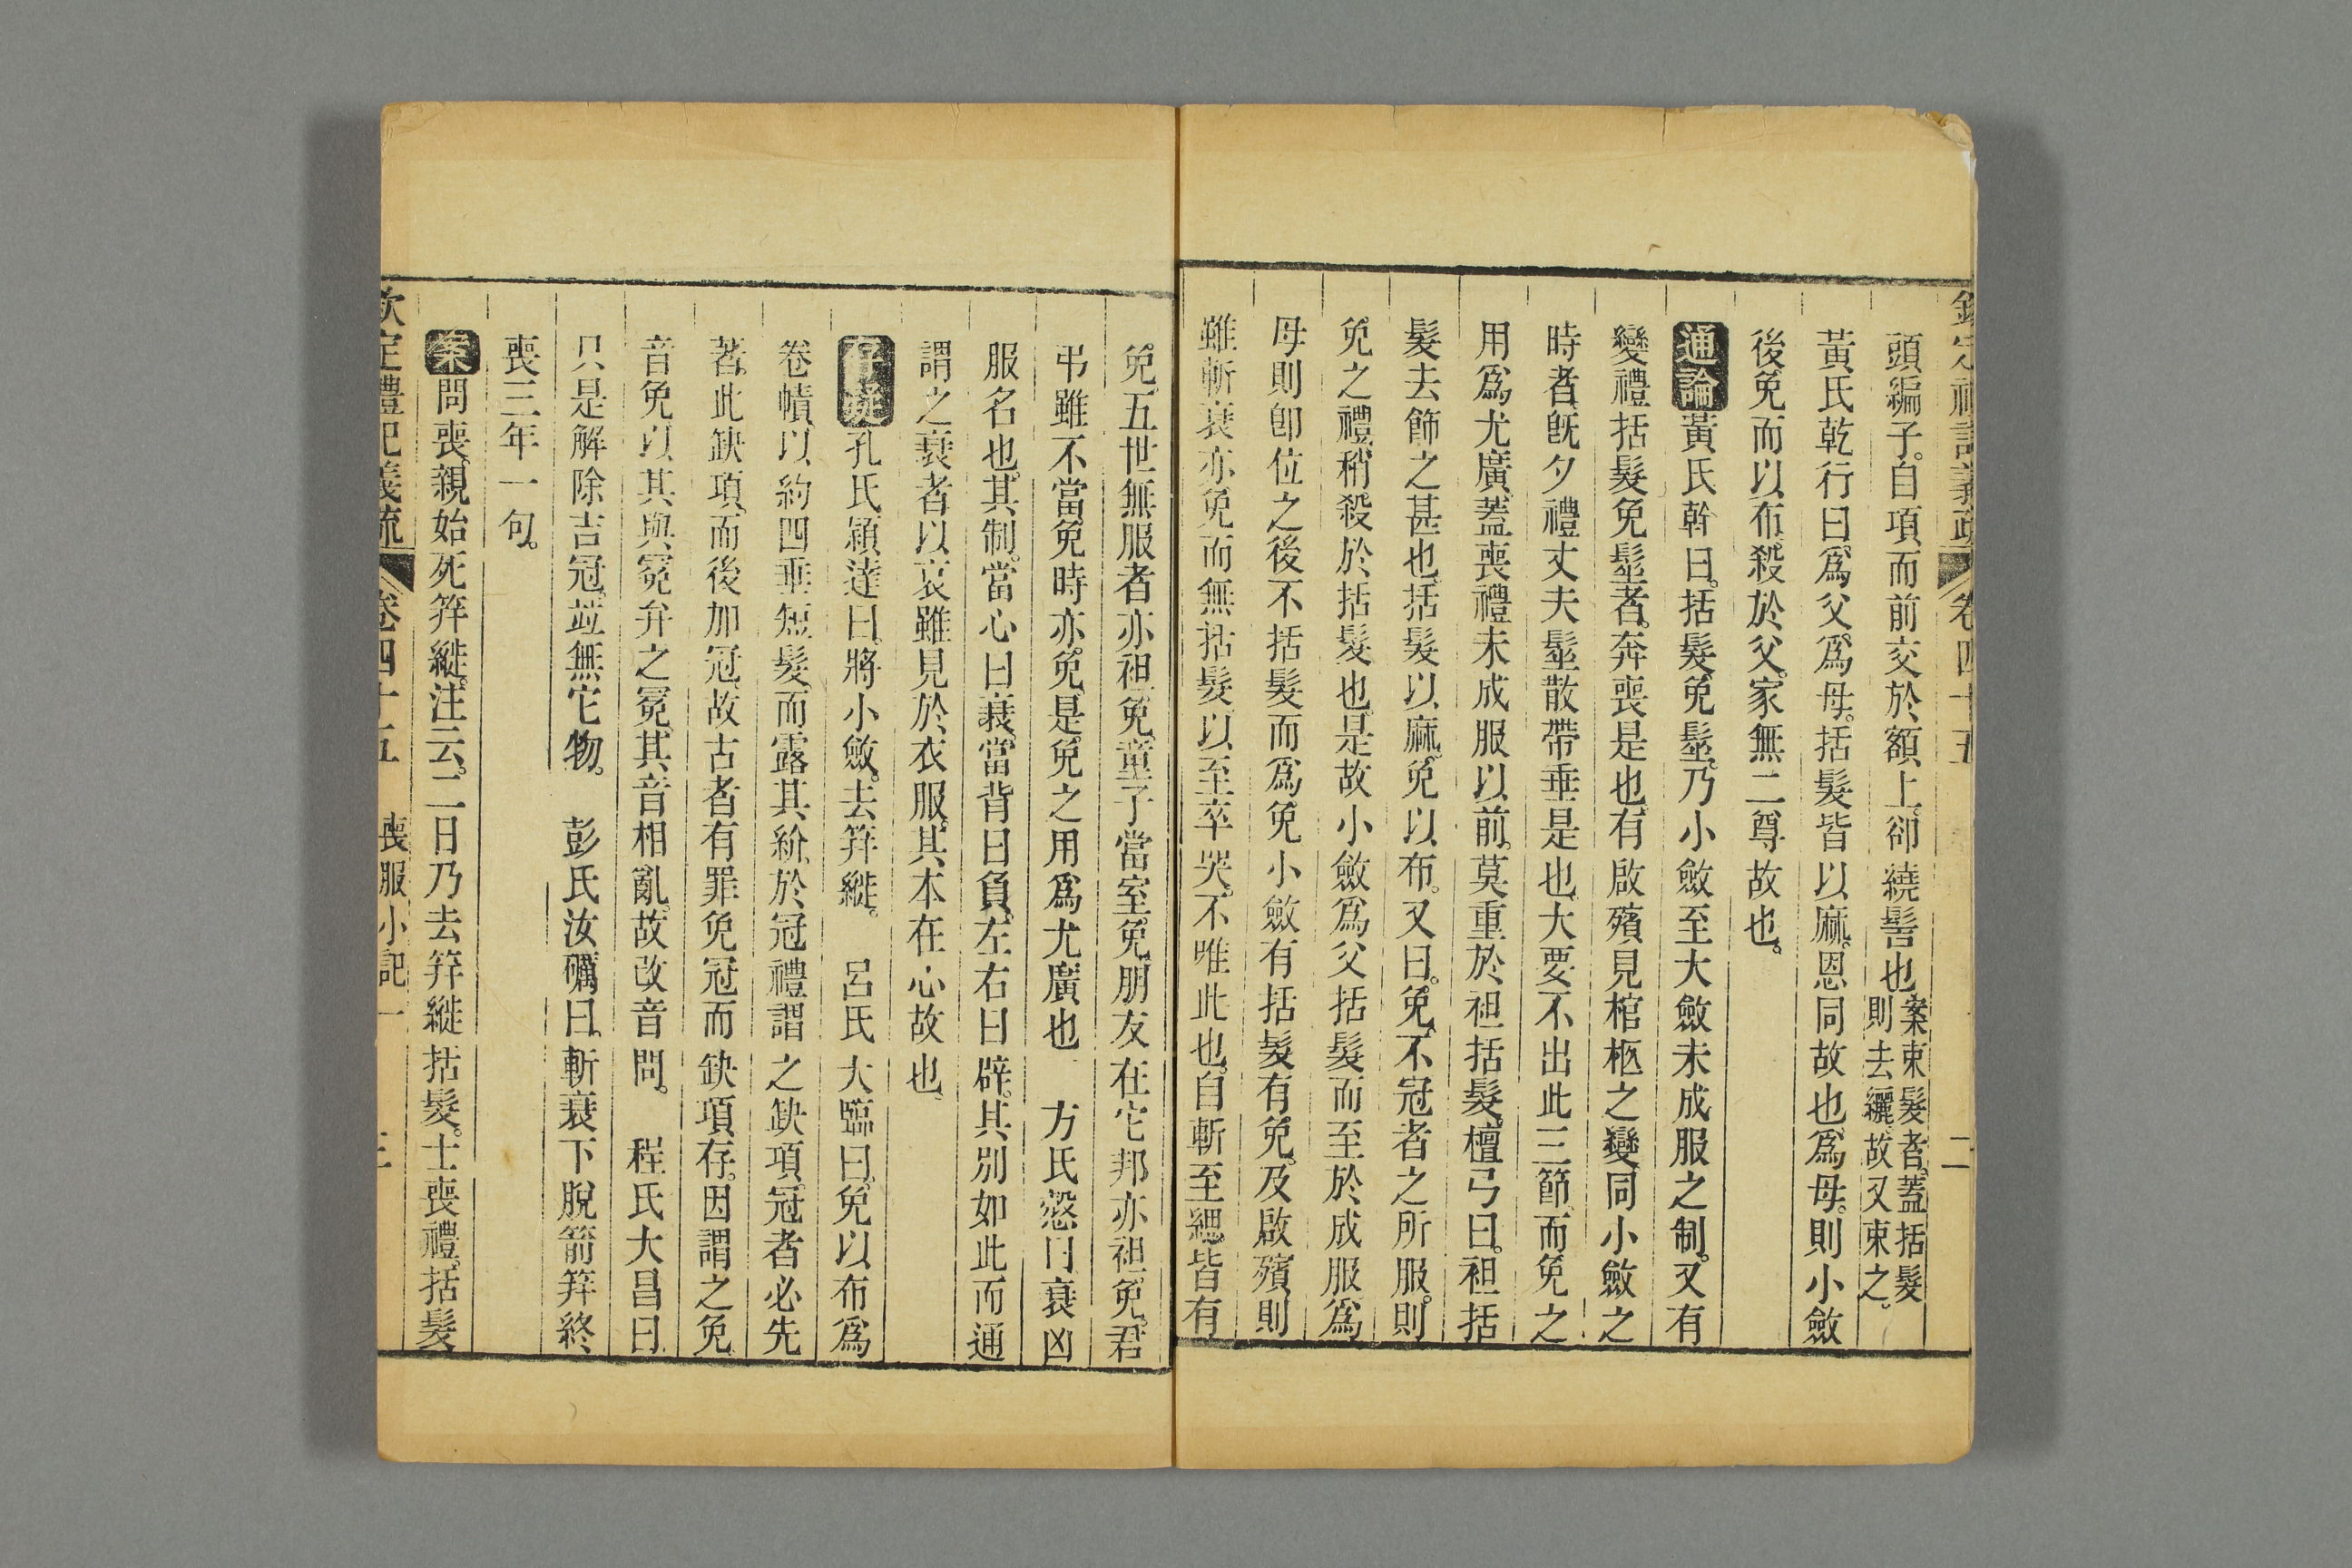 欽定禮記義疏 卷四十五 二
頭編子。自項而前交於額上。卻繞髻也。案束髮者。蓋括髮
則去纚。故又束之。
黃氏乾行曰爲父爲母。括髮皆以麻。恩同故也。爲母。則小斂
後免而以布。殺於父。家無二尊故也。
通論黃氏榦曰。括髮免髽。乃小斂至大斂未成服之制。又有
變禮括髮免髽者。奔喪是也。有啟殯見棺柩之變同小斂之
時者。旣夕禮丈夫髽散帶垂是也。大要不出此三節。而免之
用爲尤廣。蓋喪禮未成服以前。莫重於袒括髮。檀弓曰。袒括
髮去飾之甚也。括髮以麻。免以布。又曰。免不冠者之所服。則
免之禮。稍殺於括髮也。是故小斂爲父括髮而至於成服。爲
母則卽位之後不括髮而爲免。小斂有括髮有免。及啟殯。則
雖斬衰亦免而無括髮。以至卒哭。不唯此也。自斬至緦。皆有
免。五世無服者亦袒免。童子當室免。朋友在它邦亦袒免。君
弔雖不當免時亦免。是免之用爲尤廣也 方氏慤曰衰凶
服名也。其制。當心曰衰。當背曰負。左右曰辟。其別如此而通
謂之衰者。以哀雖見於衣服。其本在心故也。
存疑孔氏穎達曰。將小斂。去笄縰。 呂氏大臨曰。免以布爲
卷幘。以約四垂短髮而露其紒。於冠禮謂之缺項。冠者必先
著此缺項。而後加冠。故古者有罪免冠而缺項存。因謂之免。
音免以其與冕弁之冕。其音相亂。故改音問。 程氏大昌曰。
只是解除吉冠。竝無它物。 彭氏汝礪曰。斬衰下脫箭笄終
喪三年一句。
案問喪。親始死笄縰。注云。二日乃去笄縰括髮。士喪禮。括髮
欽定禮記義疏 卷四十五 喪服小記一 三